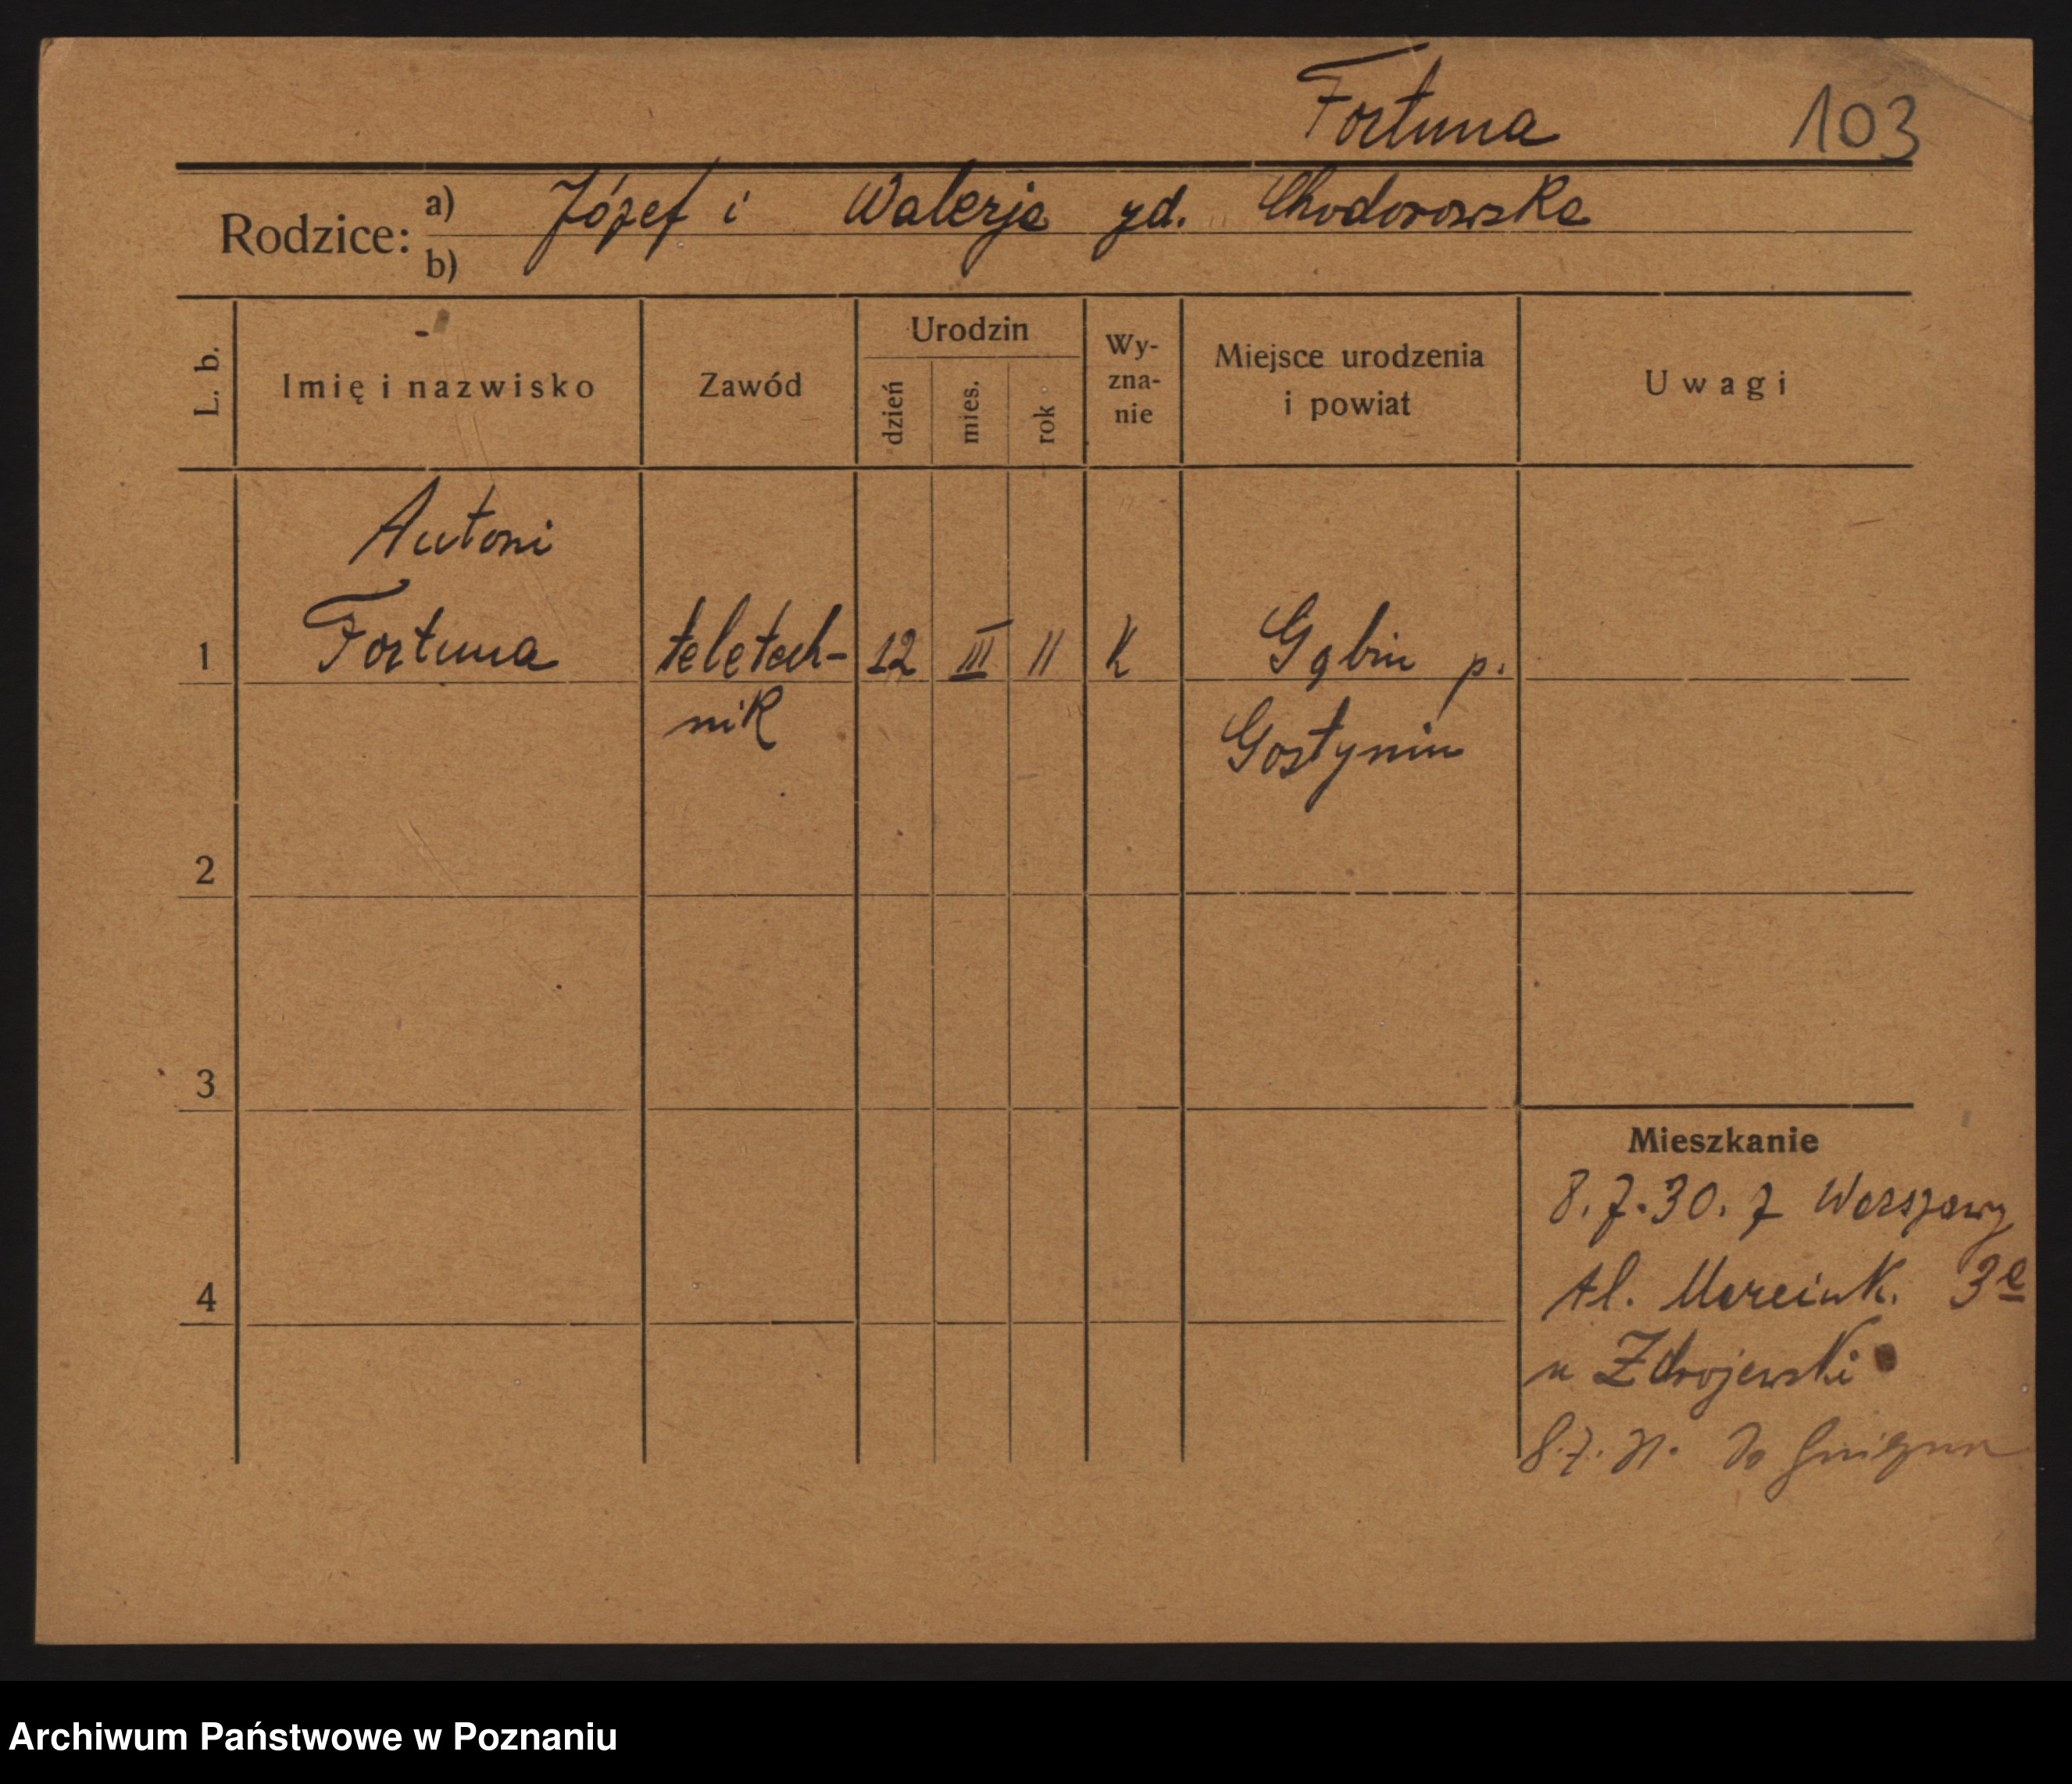 Fortuna 103
Rodzice: a) Józef i Walerja zd. Chodorowska
b)
L. b. Imię i nazwisko Zawód Urodzin dzień mies. rok Wy-zna-nie Miejsce urodzenia i powiat Uwagi
Antoni
1 Fortuna teletech- 12 III 11 k Gąbin p.
nik Gostynin
2
3
Mieszkanie
8.7.30. z Warszawy
4 Al. Marcink. 3a
u Zdrojewski
8.7.31. do Gniezna
Archiwum Państwowe w Poznaniu